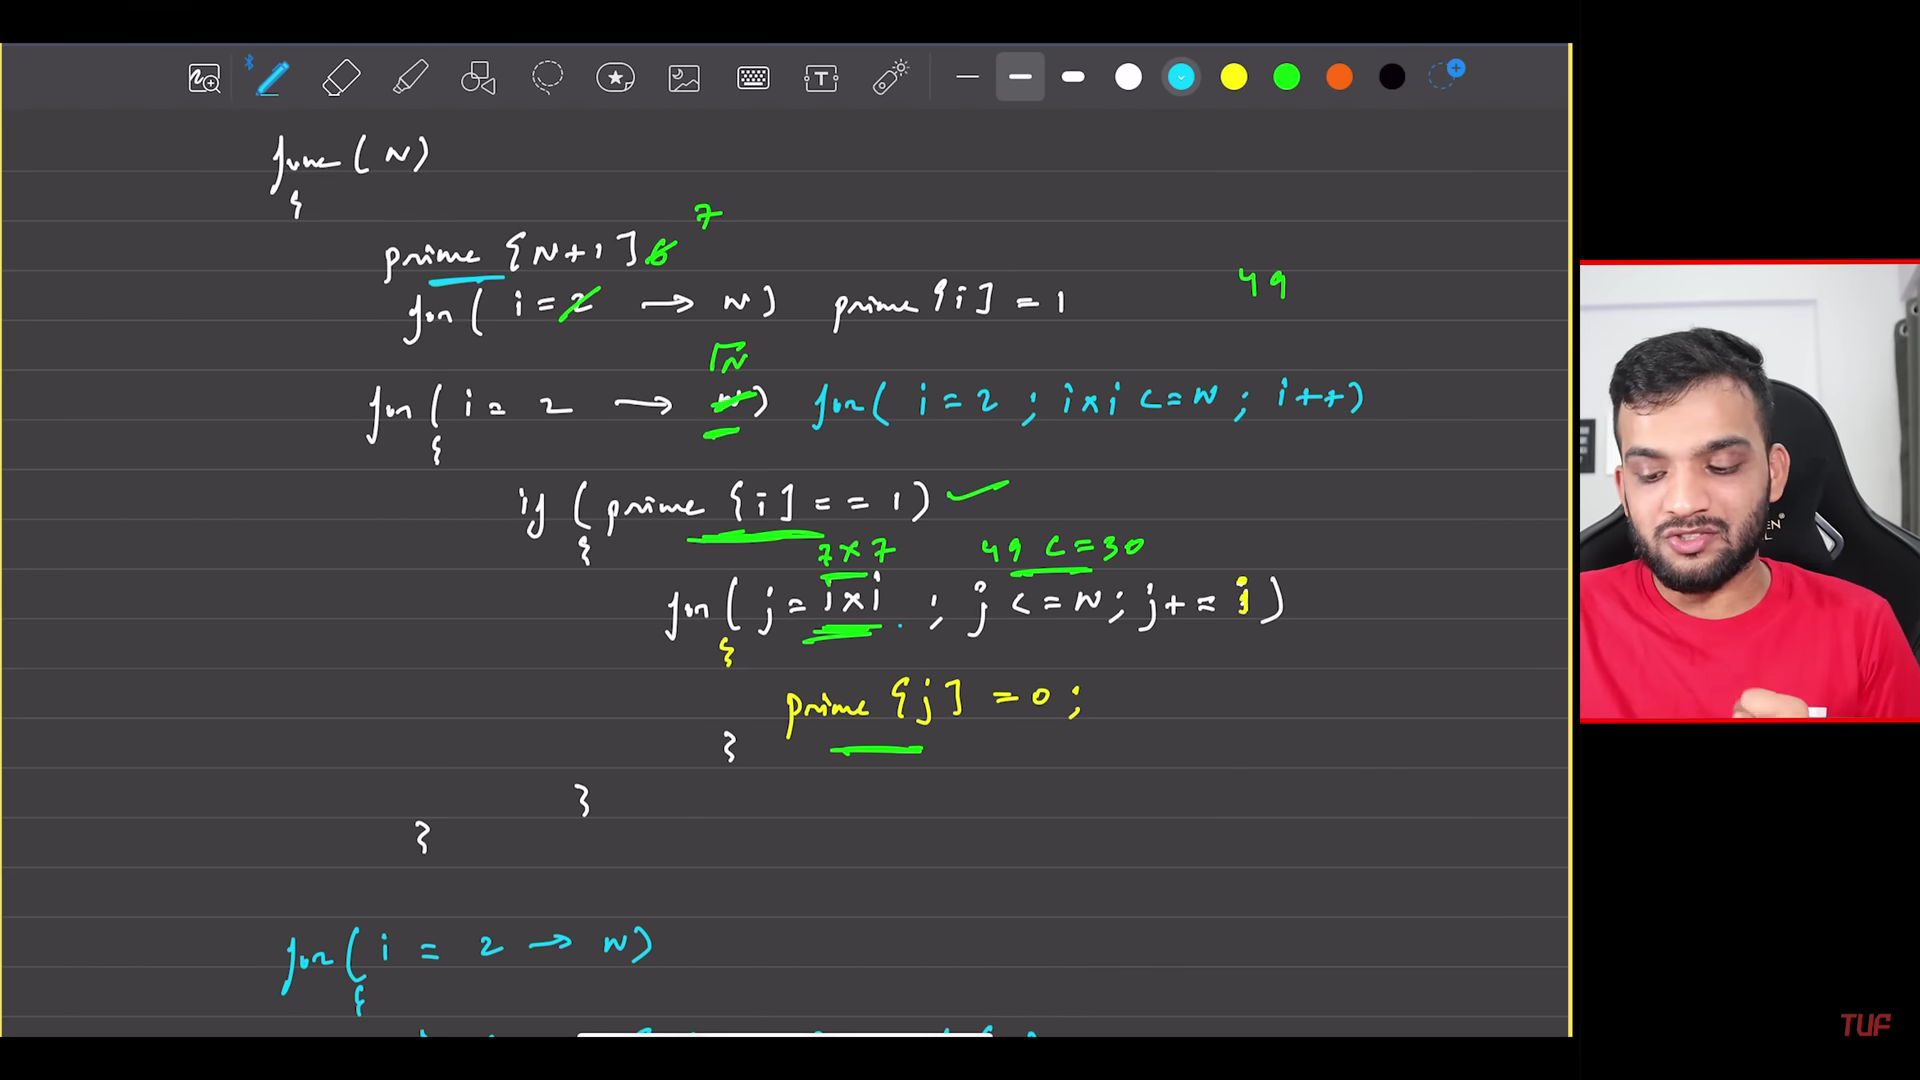 func(N)
{
7
prime[N+1] 6
for( i = 2 → N) prime[i] = 1
49
√N
for( i = 2 → N) for( i = 2 ; i×i <= N ; i++)
{
if (prime[i] == 1)
{
7×7 49 <= 30
for( j = i×i ; j <= N; j += i )
{
prime[j] = 0 ;
}
}
}
for( i = 2 → N)
{
TUF